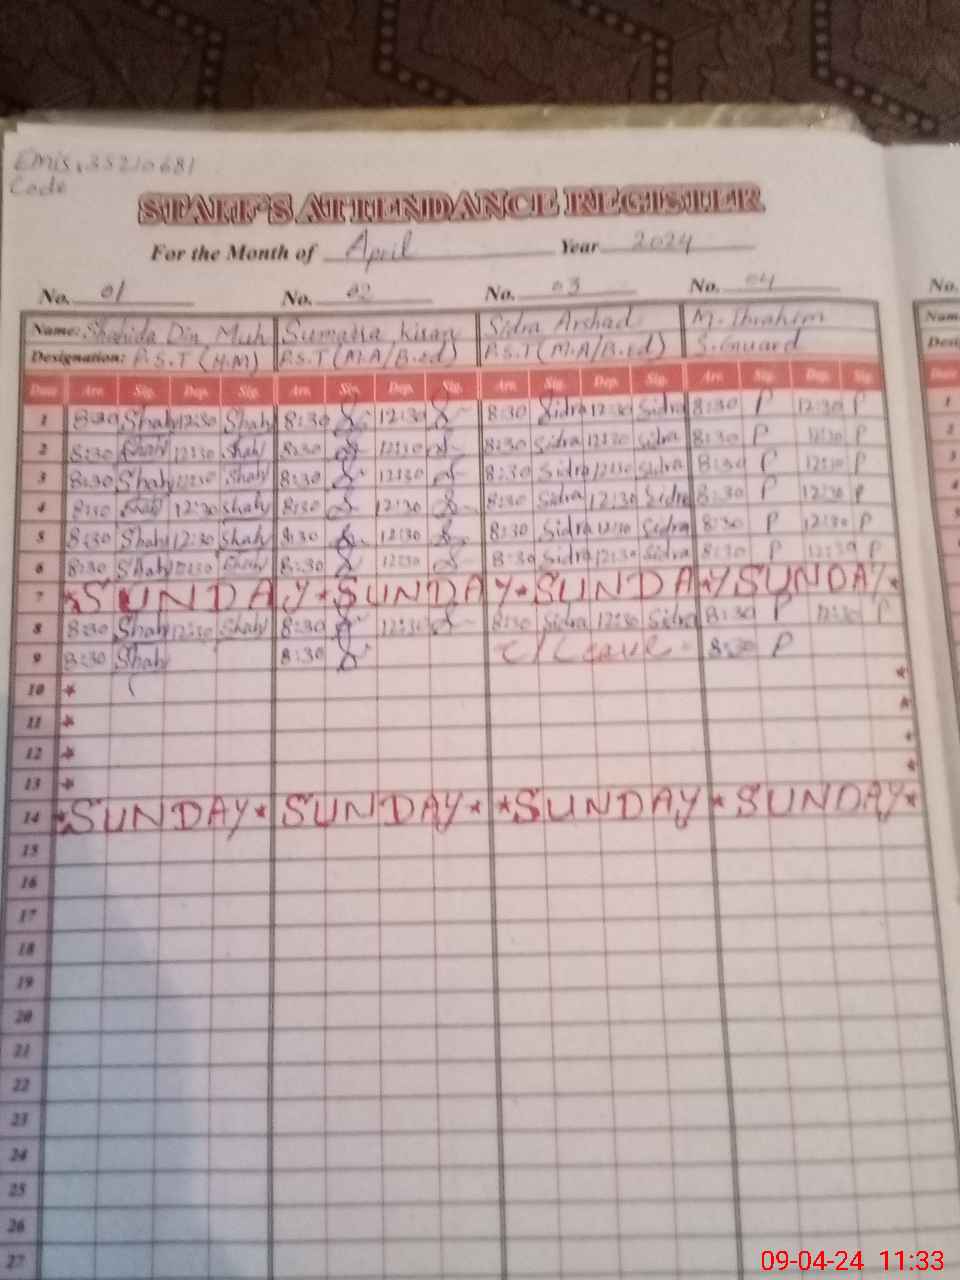 Emis.35210681
Code
STAFF'S ATTENDANCE REGISTER
For the Month of April Year 2024
No. 01 No. 02 No. 03 No. 04 No.
Name: Shahida Din Muh Sumaira Kiran Sidra Arshad M. Ibrahim Nam
Designation: P.S.T (H.M) P.S.T (M.A/B.ed) P.S.T (M.A/B.ed) S.Guard Desi
Date Arr. Sig. Dep. Sig. Arr. Sig. Dep. Sig. Arr. Sig. Dep. Sig. Arr. Sig. Dep. Sig. Date
1 8:30 Shah 12:30 Shah 8:30 12:30 8:30 Sidra 12:30 Sidra 8:30 P 12:30 P 1
2 8:30 Shah 12:30 Shah 8:30 12:30 8:30 Sidra 12:30 Sidra 8:30 P 12:30 P 2
3 8:30 Shah 12:30 Shah 8:30 12:30 8:30 Sidra 12:30 Sidra 8:30 P 12:30 P 3
4 8:30 Shah 12:30 Shah 8:30 12:30 8:30 Sidra 12:30 Sidra 8:30 P 12:30 P 4
5 8:30 Shah 12:30 Shah 8:30 12:30 8:30 Sidra 12:30 Sidra 8:30 P 12:30 P 5
6 8:30 Shah 12:30 Shah 8:30 12:30 8:30 Sidra 12:30 Sidra 8:30 P 12:30 P
7 *SUNDAY*SUNDAY*SUNDAY*SUNDAY*
8 8:30 Shah 12:30 Shah 8:30 12:30 8:30 Sidra 12:30 Sidra 8:30 P 12:30 P
9 8:30 Shah 8:30 C/Leave 8:30 P
10 * *
11 * *
12 * *
13 * *
14 *SUNDAY* SUNDAY* *SUNDAY* SUNDAY*
15
16
17
18
19
20
21
22
23
24
25
26
27
09-04-24 11:33